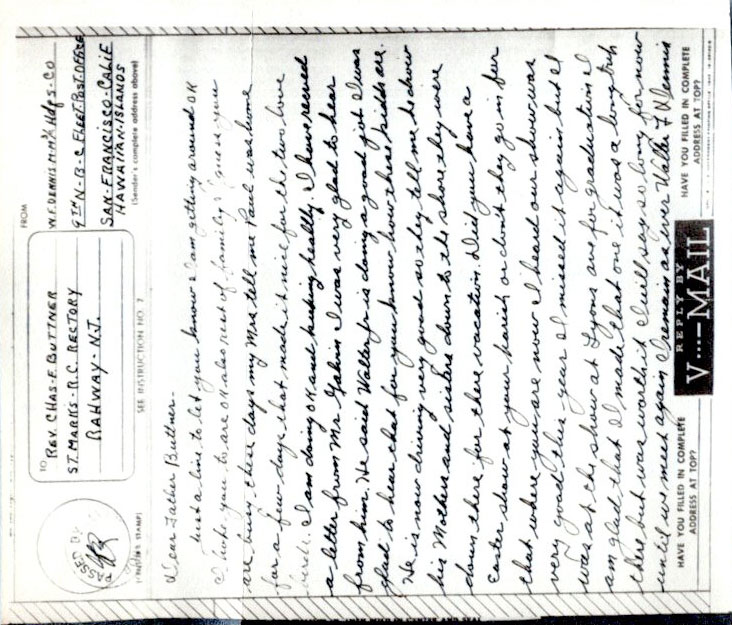 TO
REV. CHAS. F. BUTTNER
ST. MARKS - R.C. RECTORY
RAHWAY - N.J.
FROM
W. F. DENNIS M.M. 1/c Hdqs-Co
9TH N-B-C FLEET POST OFFICE
SAN-FRANCISCO-CALIF
HAWAIIAN-ISLANDS
(Sender's complete address above)
PASSED BY
(CENSOR'S STAMP)
SEE INSTRUCTION NO. 2
Dear Father Buttner.
Just a line to let you know I am getting around OK
I hope you to are OK also rest of family I guess you
are busy these days my Mrs tell me Paul was home
for a few days that made it nice for the two love
birds. I am doing OK and keeping healthy. I have received
a letter from Mr Galvin I was very glad to hear
from him. He said Walter Jr is doing a good job I was
glad to hear that for you know how those kidds are.
He is now driving very good so they tell me he drove
his Mothers and sisters down to the shore they were
down there for there vacation. Did you have a
Easter show at your parish or don't they go in for
that where you are now I heard our show was
very good this year I missed it again but I
was at the show at Lyons ave for graduation I
am glad that I made that one it was a long trip
there but was worth it I will say so long for now
until we meet again I remain as ever Walter F Dennis
HAVE YOU FILLED IN COMPLETE
ADDRESS AT TOP?
REPLY BY
V···—MAIL
HAVE YOU FILLED IN COMPLETE
ADDRESS AT TOP?